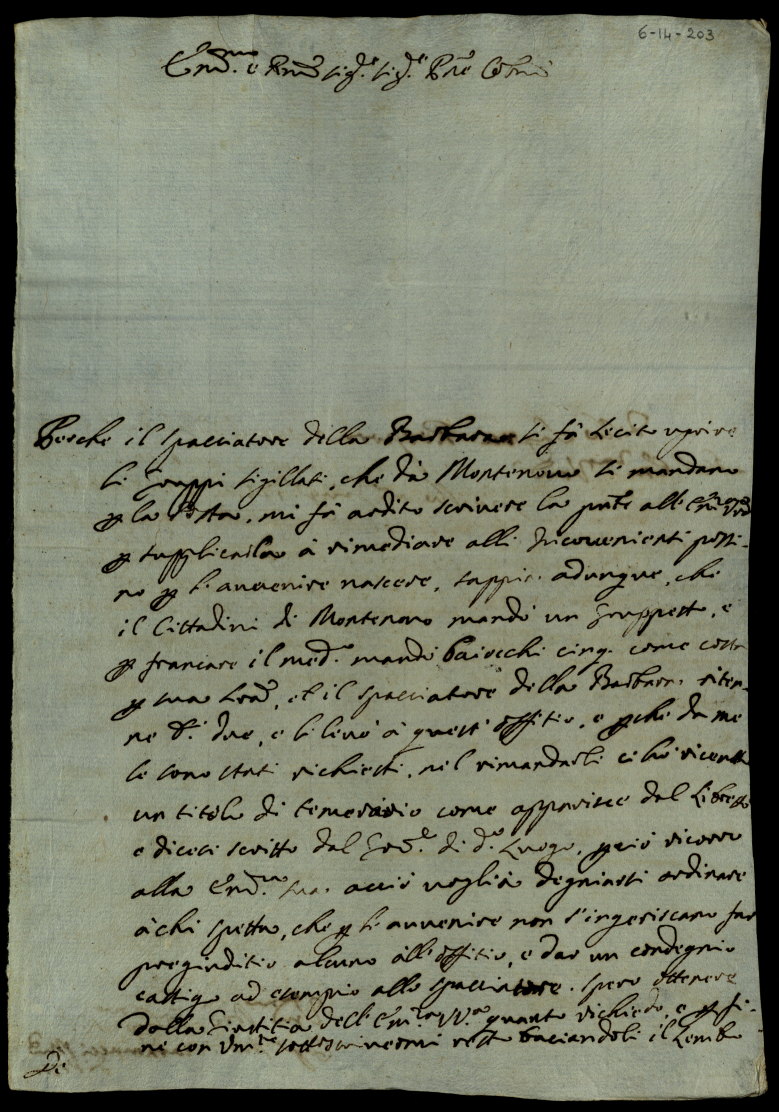 6-14-203
Em.mo e Rmo Sig.e Sig.e Pne Colmo
Perche il spacciatore della Barbara si fà lecito aprire
li gruppi sigillati, che dà Montenovo si mandano
p la Posta, mi fà ardito scrivere la pnte all' Em.za Vra
p supplicarla à rimediare alli Inconvenienti possi-
no p l'auuenire nascere, sappia adunque, che
il Cittadini di Montenovo mandò un gruppetto, e
p francare il med.o mandò baiocchi cinq. come costa
p sua lra, et il spacciatore della Barbara riten-
ne d.i due, e li levò à quest' offitio, e pche da me
le sono stati richiesti, nel rimandarli ci hò ricevuto
un titolo di temerario come apparisce dal Libretto
e dicesi scritto dal Gov.e di d.o Luogo, pciò ricorro
alla Em.za sua acciò voglia degniarsi ordinare
à chi spetta, che p l'auuenire non s'ingeriscano far
pregiuditio alcuno all' offitio, e dar un condegnio
castigo ad esempio allo spacciatore. spero ottenere
dalla Giustitia dell' Em.za V.ra quanto richiedo, e p fi-
ne con Um.te sottoscrivermi resto baciandoli il Lembo
De